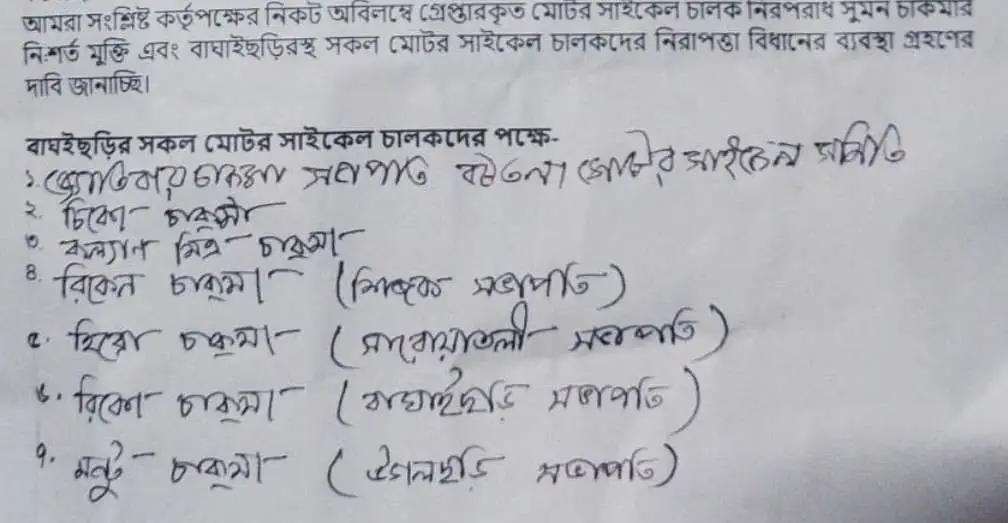 আমরা সংশ্লিষ্ট কর্তৃপক্ষের নিকট অবিলম্বে গ্রেপ্তারকৃত মোটর সাইকেল চালক নিরপরাধ সুমন চাকমার
নিঃশর্ত মুক্তি এবং বাঘাইছড়িরস্থ সকল মোটর সাইকেল চালকদের নিরাপত্তা বিধানের ব্যবস্থা গ্রহণের
দাবি জানাচ্ছি।
বাঘাইছড়ির সকল মোটর সাইকেল চালকদের পক্ষে-
১. চাকমা সভাপতি বটতলা মোটর সাইকেল সমিতি
২. চাকমা
৩. কল্যান মিত্র চাকমা
৪. রিকেন চাকমা (শিজক সভাপতি)
৫. হিরো চাকমা (সারোয়াতলী সভাপতি)
৬. চাকমা (বাঘাইছড়ি সভাপতি)
৭. মন্টু চাকমা (উগলছড়ি সভাপতি)